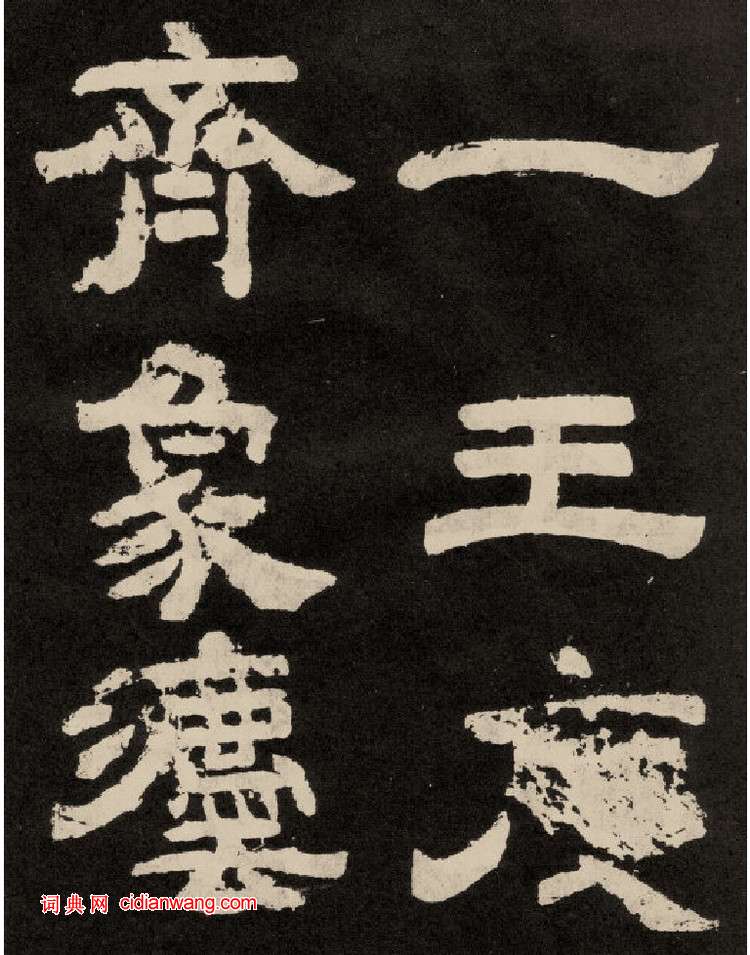 一王度
齊象
词典网 cidianwang.com